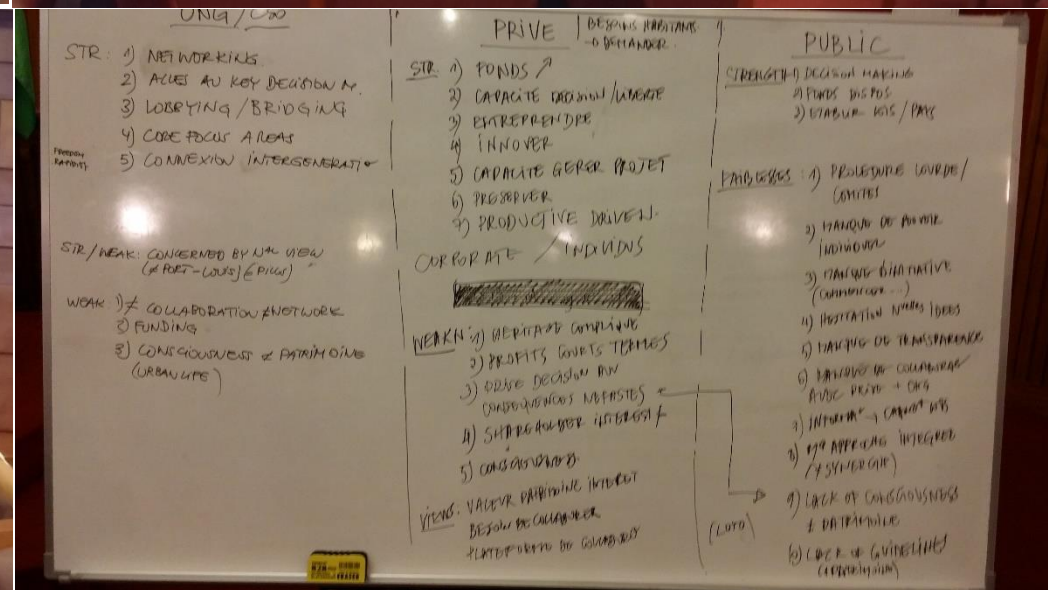 ONG / CSO
STR: 1) NETWORKING
2) ACCES AU KEY DECISION M.
3) LOBBYING / BRIDGING
4) CORE FOCUS AREAS
FREEDOM
RAPIDITY
5) CONNEXION INTERGENERATIO
STR/WEAK: CONCERNED BY NAL VIEW
(≠ PORT-LOUIS)
WEAK: 1) ≠ COLLABORATION ≠ NETWORK
2) FUNDING
3) CONSCIOUSNESS ≠ PATRIMOINE
(URBAN LIFE)
PRIVE
BESOINS HABITANTS
→ DEMANDER.
STR: 1) FONDS ↗
2) CAPACITE DECISION / LIBERTE
3) ENTREPRENDRE
4) INNOVER
5) CAPACITE GERER PROJET
6) PRESERVER
7) PRODUCTIVE DRIVEN.
CORPORATE / INDIVIDUS
WEAKN: 1) HERITAGE COMPLIQUE
2) PROFITS COURTS TERMES
3) PRISE DECISION
CONSEQUENCES NEFASTES
4) SHAREHOLDER INTEREST
5) CONSCIOUSNESS
VIEWS: VALEUR PATRIMOINE INTERET
BESOIN DE COLLABORER
PLATEFORME DE
PUBLIC
STRENGTH 1) DECISION MAKING
2) FONDS DISPOS
3) ETABLIR LOIS /
FAIBLESSES: 1) PROCEDURE LOURDE /
COMITES
2) MANQUE DE POUVOIR
INDIVIDUEL
3) MANQUE D'INITIATIVE
4) HESITATION NVELLES IDEES
5) MANQUE DE TRANSPARENCE
6) MANQUE DE COLLABORAT
AVEC PRIVE + ONG
7)
8) APPROCHE INTEGREE
(≠ SYNERGIE)
9) LACK OF CONSCIOUSNESS
≠ PATRIMOINE
(LOTO)
10) LACK OF GUIDELINES
ERASER